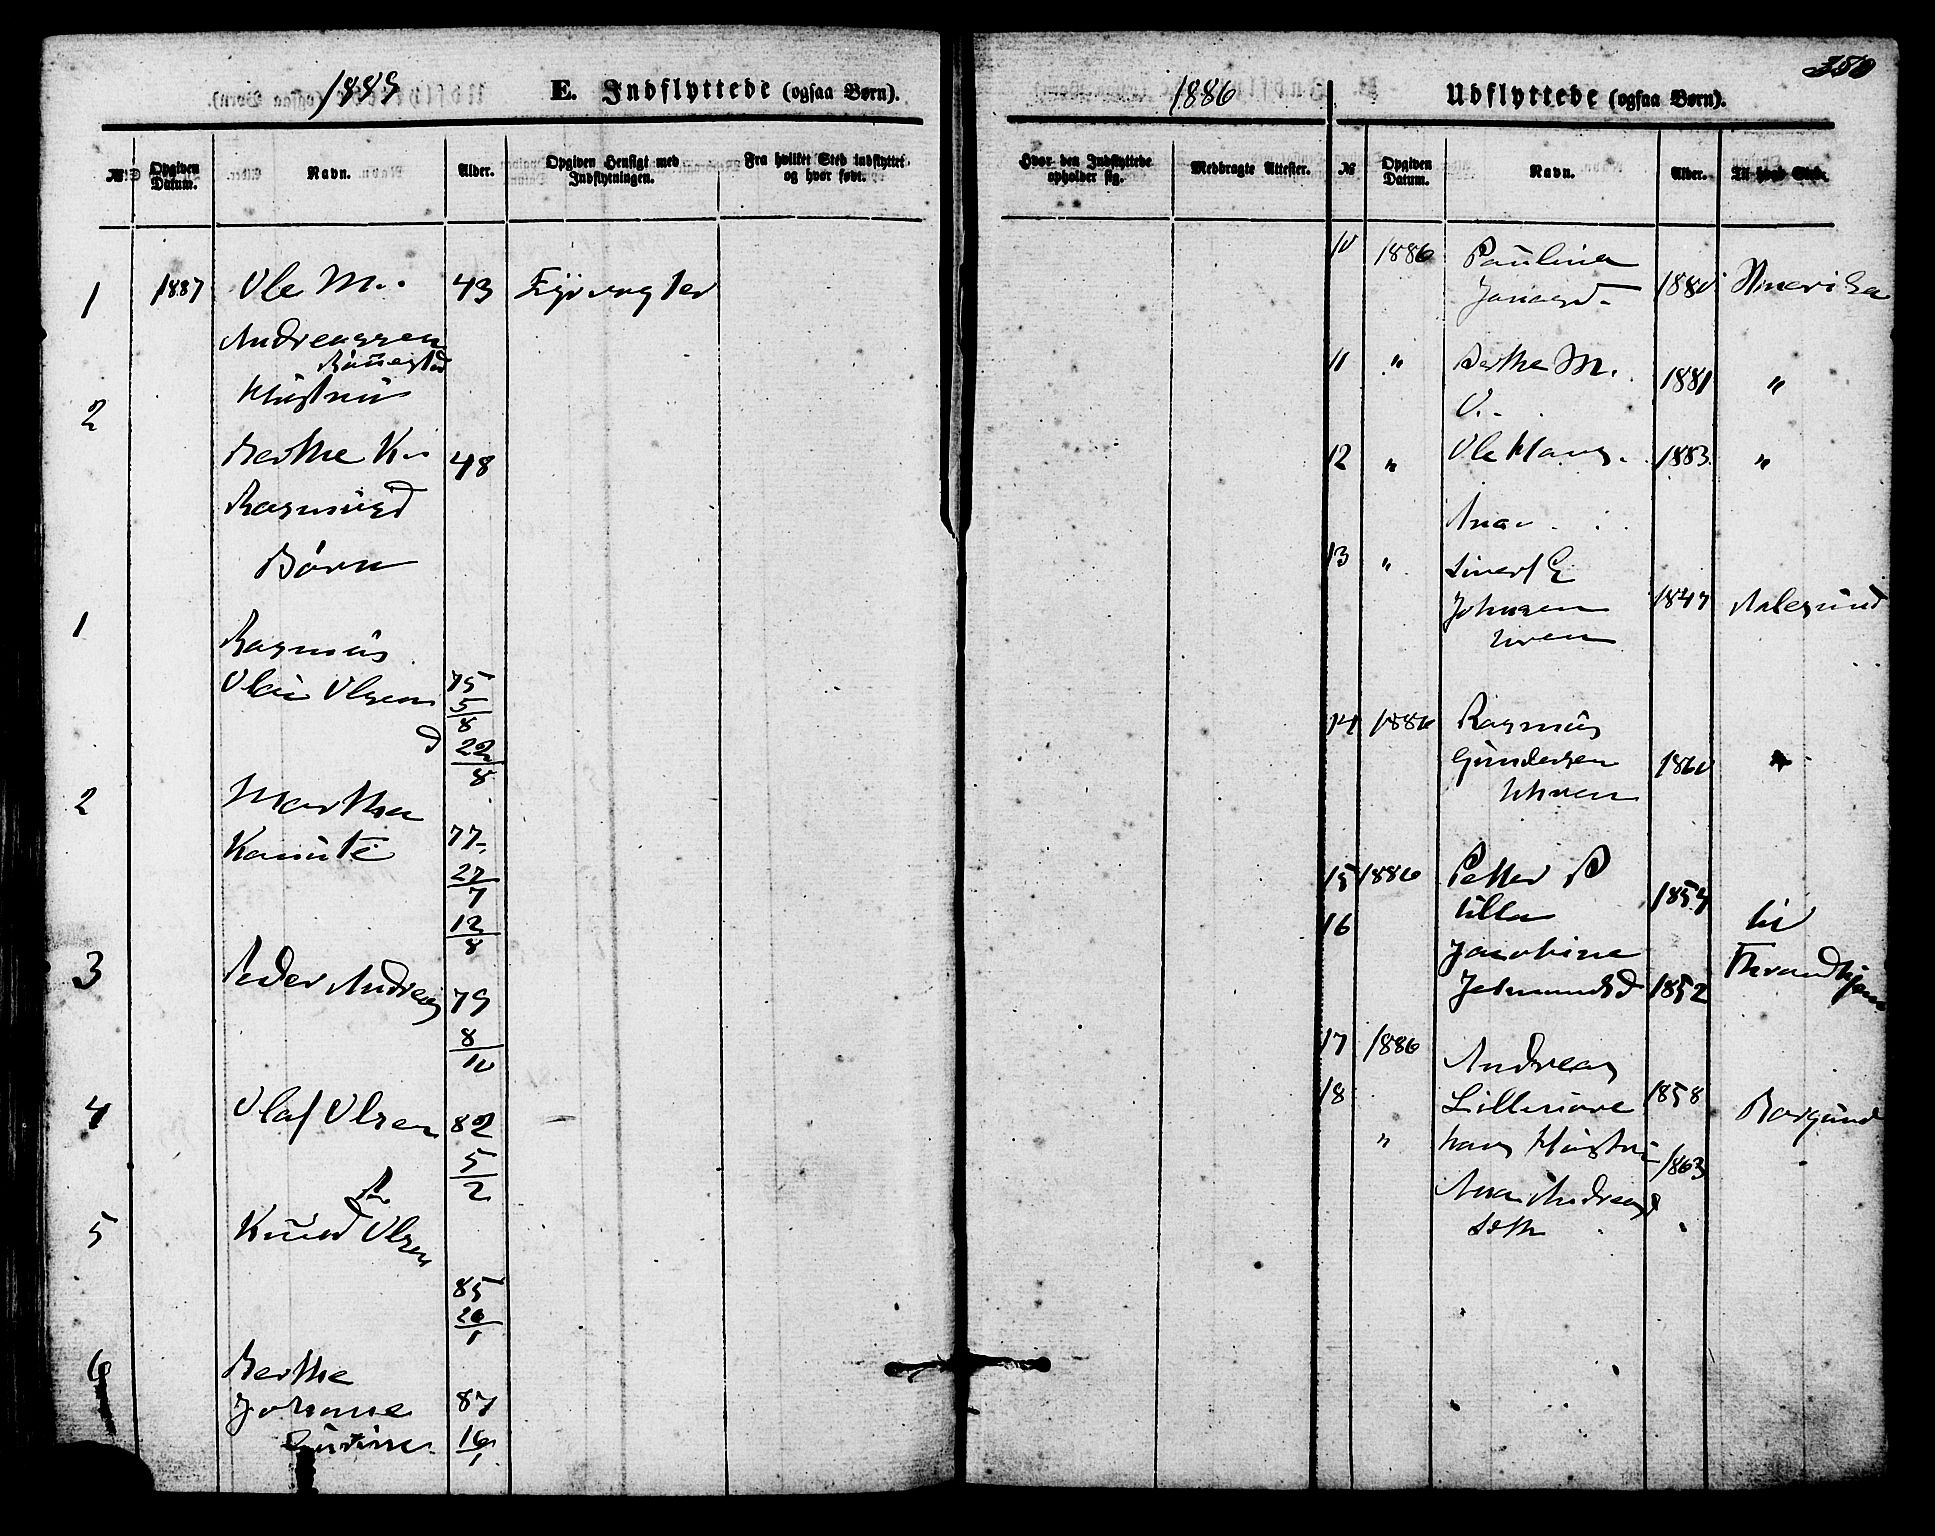 1889
E. Indflyttede (ogsaa Børn).
№
Opgiven Datum.
Navn.
Alder.
Opgiven Hensigt med Indflytningen.
Fra hvilket Sted indflyttet, og hvor født.
1 1887 Ole M. 43 Fyrvogter
Andreassen
2 Hustru
Berthe K. 48
Rasmusd
Børn
1 Rasmus
Olai Olsen 75
5/8
d 22/8
2 Martha
77
27/7
12/8
3 Peder Andreas 79
8/10
4 Olaf Olsen 82
5/2
5 Knud Olsen
85
26/1
6 Berthe
Johanne 87
16/1
1886
350
Udflyttede (ogsaa Børn).
Hvor den Indflyttede opholder sig.
Medbragte Attester.
№
Opgiven Datum.
Navn.
Alder.
Til hvad Sted.
10 1886 Pauline
Jonasd. 1880 Amerika
11 " Berthe M. 1881 "
O.
12 " Ole Hans. 1883 "
Ana
13 " Sivert E
Johnsen 1847 Aalesund
14 1886 Rasmus
Gundersen 1860 "
15 1886 Petter P
Ulla 1854 til
16 Jacobine Throndhjem
1852
17 1886 Andreas
18 Lillenøre 1858 Borgund
" hans Hustru 1863
Ana Andreasd